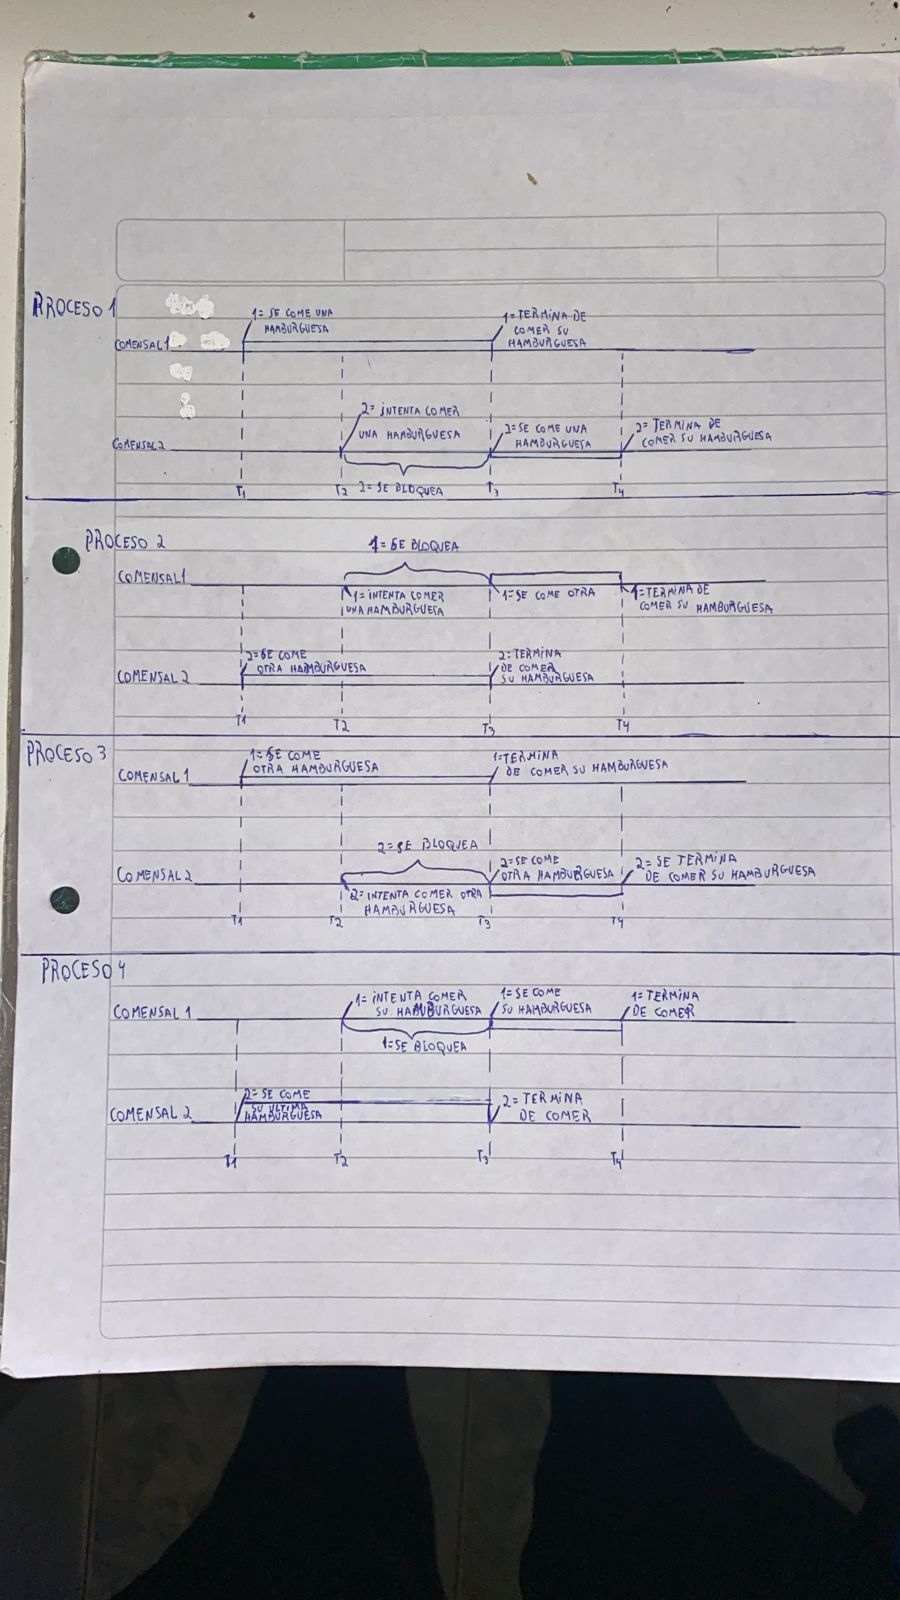 PROCESO 1
1= SE COME UNA
HAMBURGUESA
1= TERMINA DE
COMER SU
HAMBURGUESA
COMENSAL1
2= INTENTA COMER
UNA HAMBURGUESA
2= SE COME UNA
HAMBURGUESA
2= TERMINA DE
COMER SU HAMBURGUESA
COMENSAL 2
2= SE BLOQUEA
T1 T2 T3 T4
PROCESO 2
1= SE BLOQUEA
COMENSAL1
1= INTENTA COMER
UNA HAMBURGUESA
1= SE COME OTRA
1= TERMINA DE
COMER SU HAMBURGUESA
2= SE COME
OTRA HAMBURGUESA
2= TERMINA
DE COMER
SU HAMBURGUESA
COMENSAL 2
T1 T2 T3 T4
PROCESO 3
1= SE COME
OTRA HAMBURGUESA
1=TERMINA
DE COMER SU HAMBURGUESA
COMENSAL 1
2= SE BLOQUEA
2= SE COME
OTRA HAMBURGUESA
2= SE TERMINA
DE COMER SU HAMBURGUESA
COMENSAL 2
2= INTENTA COMER OTRA
HAMBURGUESA
T1 T2 T3 T4
PROCESO 4
1= INTENTA COMER
SU HAMBURGUESA
1= SE COME
SU HAMBURGUESA
1= TERMINA
DE COMER
COMENSAL 1
1=SE BLOQUEA
2= SE COME
SU ULTIMA
HAMBURGUESA
2= TERMINA
DE COMER
COMENSAL 2
T1 T2 T3 T4